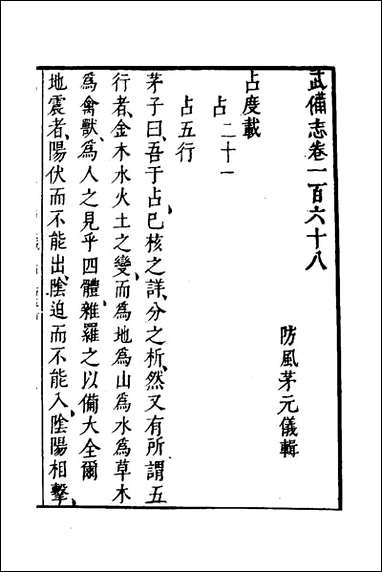 武備志卷一百六十八
防風茅元儀輯
占度載
占二十一
占五行
茅子曰、吾于占已核之詳、分之析、然又有所謂五
行者、金木水火土之變、而為地為山為水為草木
為禽獸、為人之見乎四體、雜羅之以備大全爾
地震者、陽伏而不能出、陰迫而不能入、陰陽相擊、